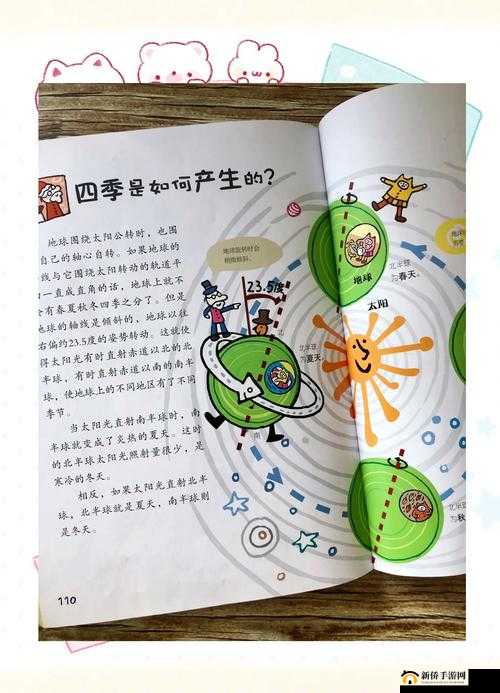 四季是如何产生的?
地球围绕太阳公转时，也围
自己的轴心自转。如果地球的
线与它围绕太阳转动的轨道平
一直成直角的话，地球上就不
会有春夏秋冬四季之分了。但是
地球的轴线是倾斜的，地球以往
右偏约23.5度的姿势转动。这就使
得太阳光有时直射赤道以北的北
半球，有时直射赤道以南的南半
球，使地球上的不同地区有了不同
季节。
当太阳光直射南半球时，南
半球就变成了炎热的夏天。这时
的北半球太阳光照射量很少，是
寒冷的冬天。
相反，如果太阳光直射北半
球，北半球就是夏天，南半球则
是冬天。
110
地球旋转时会
稍微倾斜。
23.5度
北
南
地球
北半球
为春天。
太阳
北半球
为夏天。
北半球
为秋
新侨手游网